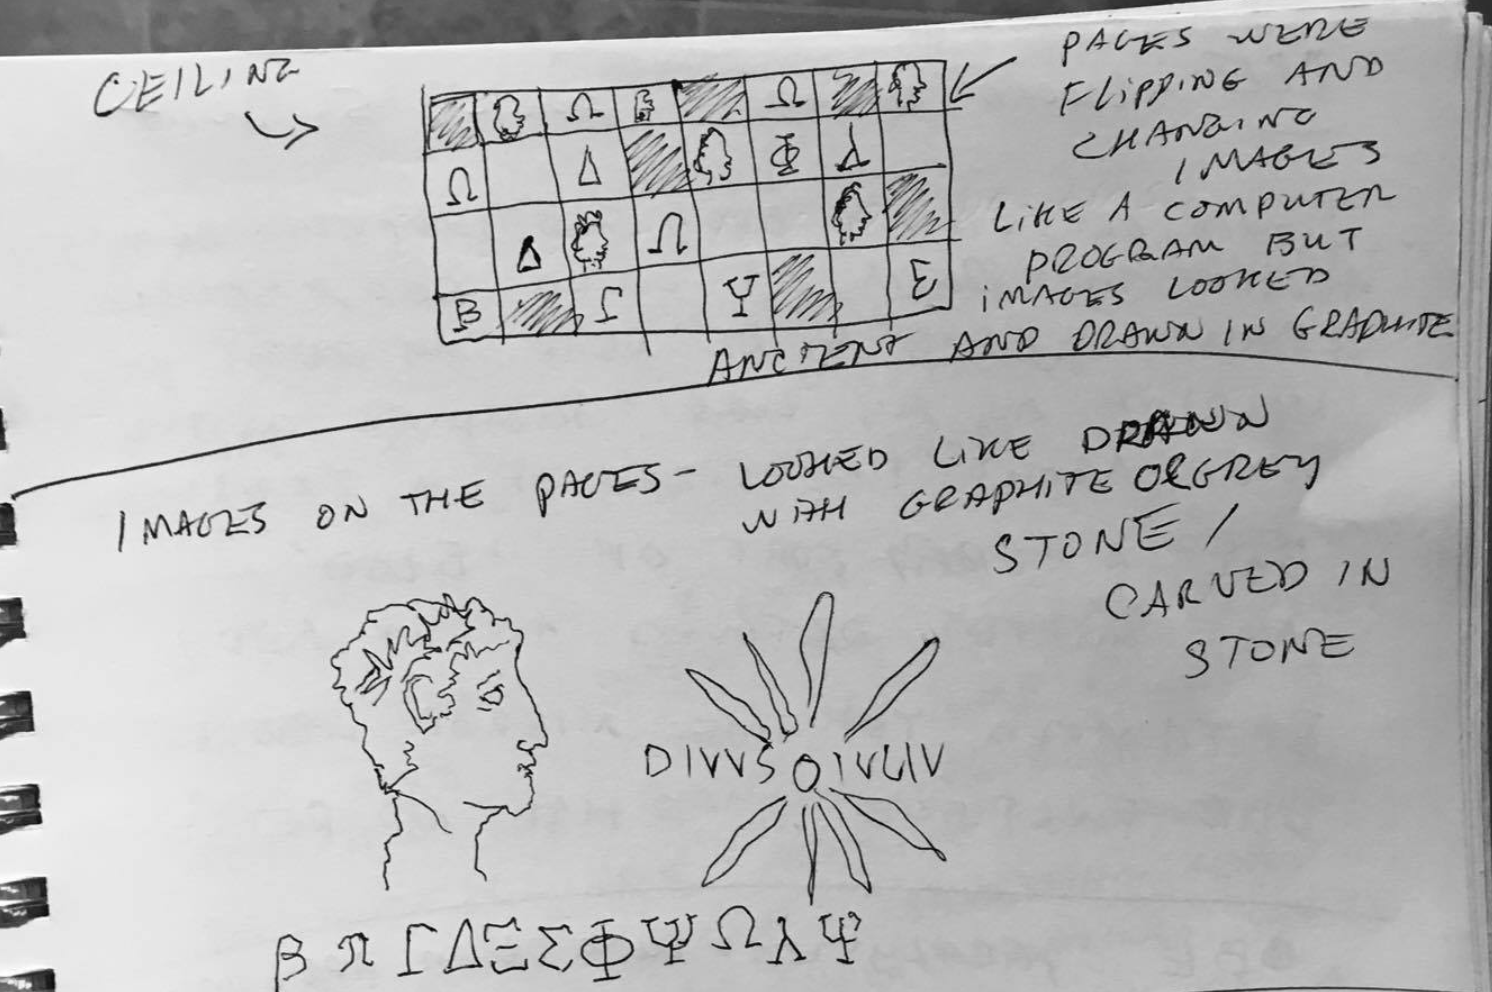 CEILING
PAGES WERE
FLIPPING AND
CHANGING
IMAGES
LIKE A COMPUTER
PROGRAM BUT
IMAGES LOOKED
ANCIENT AND DRAWN IN GRAPHITE
Ω Ω
Ω Δ Φ λ
Δ Ω
B Γ Ψ Σ
IMAGES ON THE PAGES - LOOKED LIKE DRAWN
WITH GRAPHITE OR GREY
STONE /
CARVED IN
STONE
DIVVS IVLIV
β π Γ Δ Ξ Σ Φ Ψ Ω λ